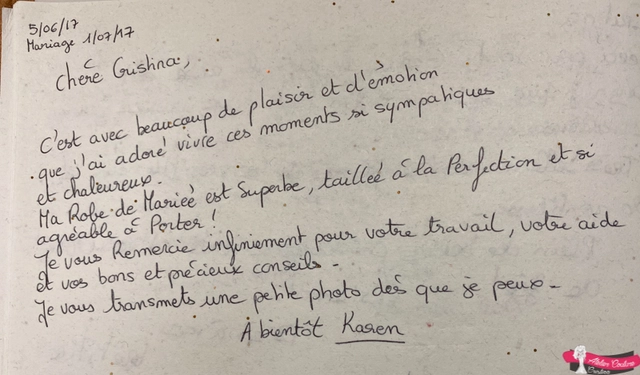 5/06/17
Mariage 1/07/17
Chère Cristina,
C'est avec beaucoup de plaisir et d'émotion
que j'ai adoré vivre ces moments si sympatiques
et chaleureux.
Ma Robe de Mariée est Superbe, tailleé à la Perfection et si
agréable à Porter !
Je vous Remercie infiniement pour votre travail, votre aide
et vos bons et précieux conseils -
Je vous transmets une petite photo dès que je peux -
A bientôt Karen
Atelier Couture